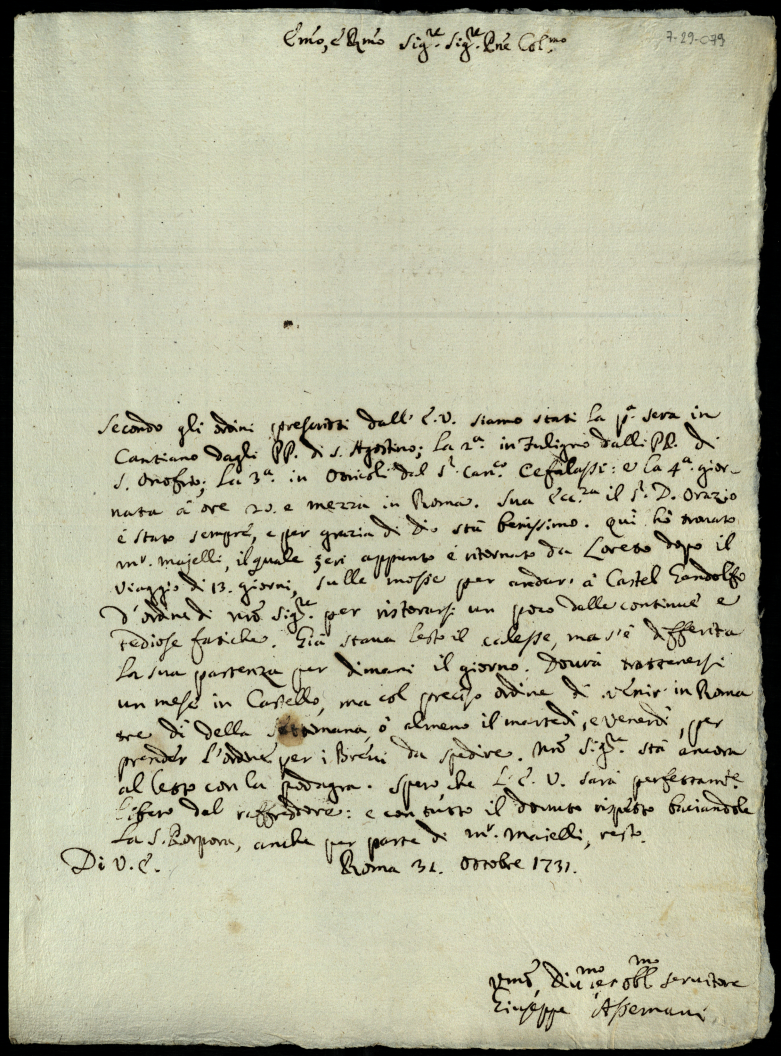 Emo, e Rmo Sig.re Sig.re Pne Col.mo
7-29-079
Secondo gli ordini prescritti dall' E.V. siamo stati la p.a sera in
Cantiano dagli PP. di S. Agostino; la 2.a in Fuligno dalli PP. di
S. Onofrio; la 3.a in Otricoli dal S.r Can.co Cefalassi: e la 4.a gior-
nata à ore 20. e mezza in Roma. Sua Ecc.za il S.r D. Orazio
è stato sempre, e per grazia di dio stà benissimo. Quì hò trovato
m.r Majelli, il quale jeri appunto è ritornato da Loreto dopo il
viaggio di 13. giorni, sulle mosse per andar à Castel Gandolfo
d'ordine di nrõ Sig.re per ristorarsi un poco dalle continue e
tediose fatiche. Già stava lesto il calesse, ma s'è differita
la sua partenza per dimani il giorno. Dovrà trattenersi
un mese in Castello, ma col preciso ordine di venir in Roma
tre dì della Settimana, ò almeno il martedì, e venerdì, per
prender l'ordine per i Brevi da spedire. Nrõ Sig.re stà ancora
al letto con la podagra. Spero che l'E.V. sarà perfettam.te
libero del raffreddore: e con tutto il dovuto rispetto baciandole
la S. Porpora, anche per parte di m.r Majelli, resto.
Di V.E. Roma 31. Ottobre 1731.
Vmõ, div.mo ed obl.mo servitore
Giuseppe Assemani